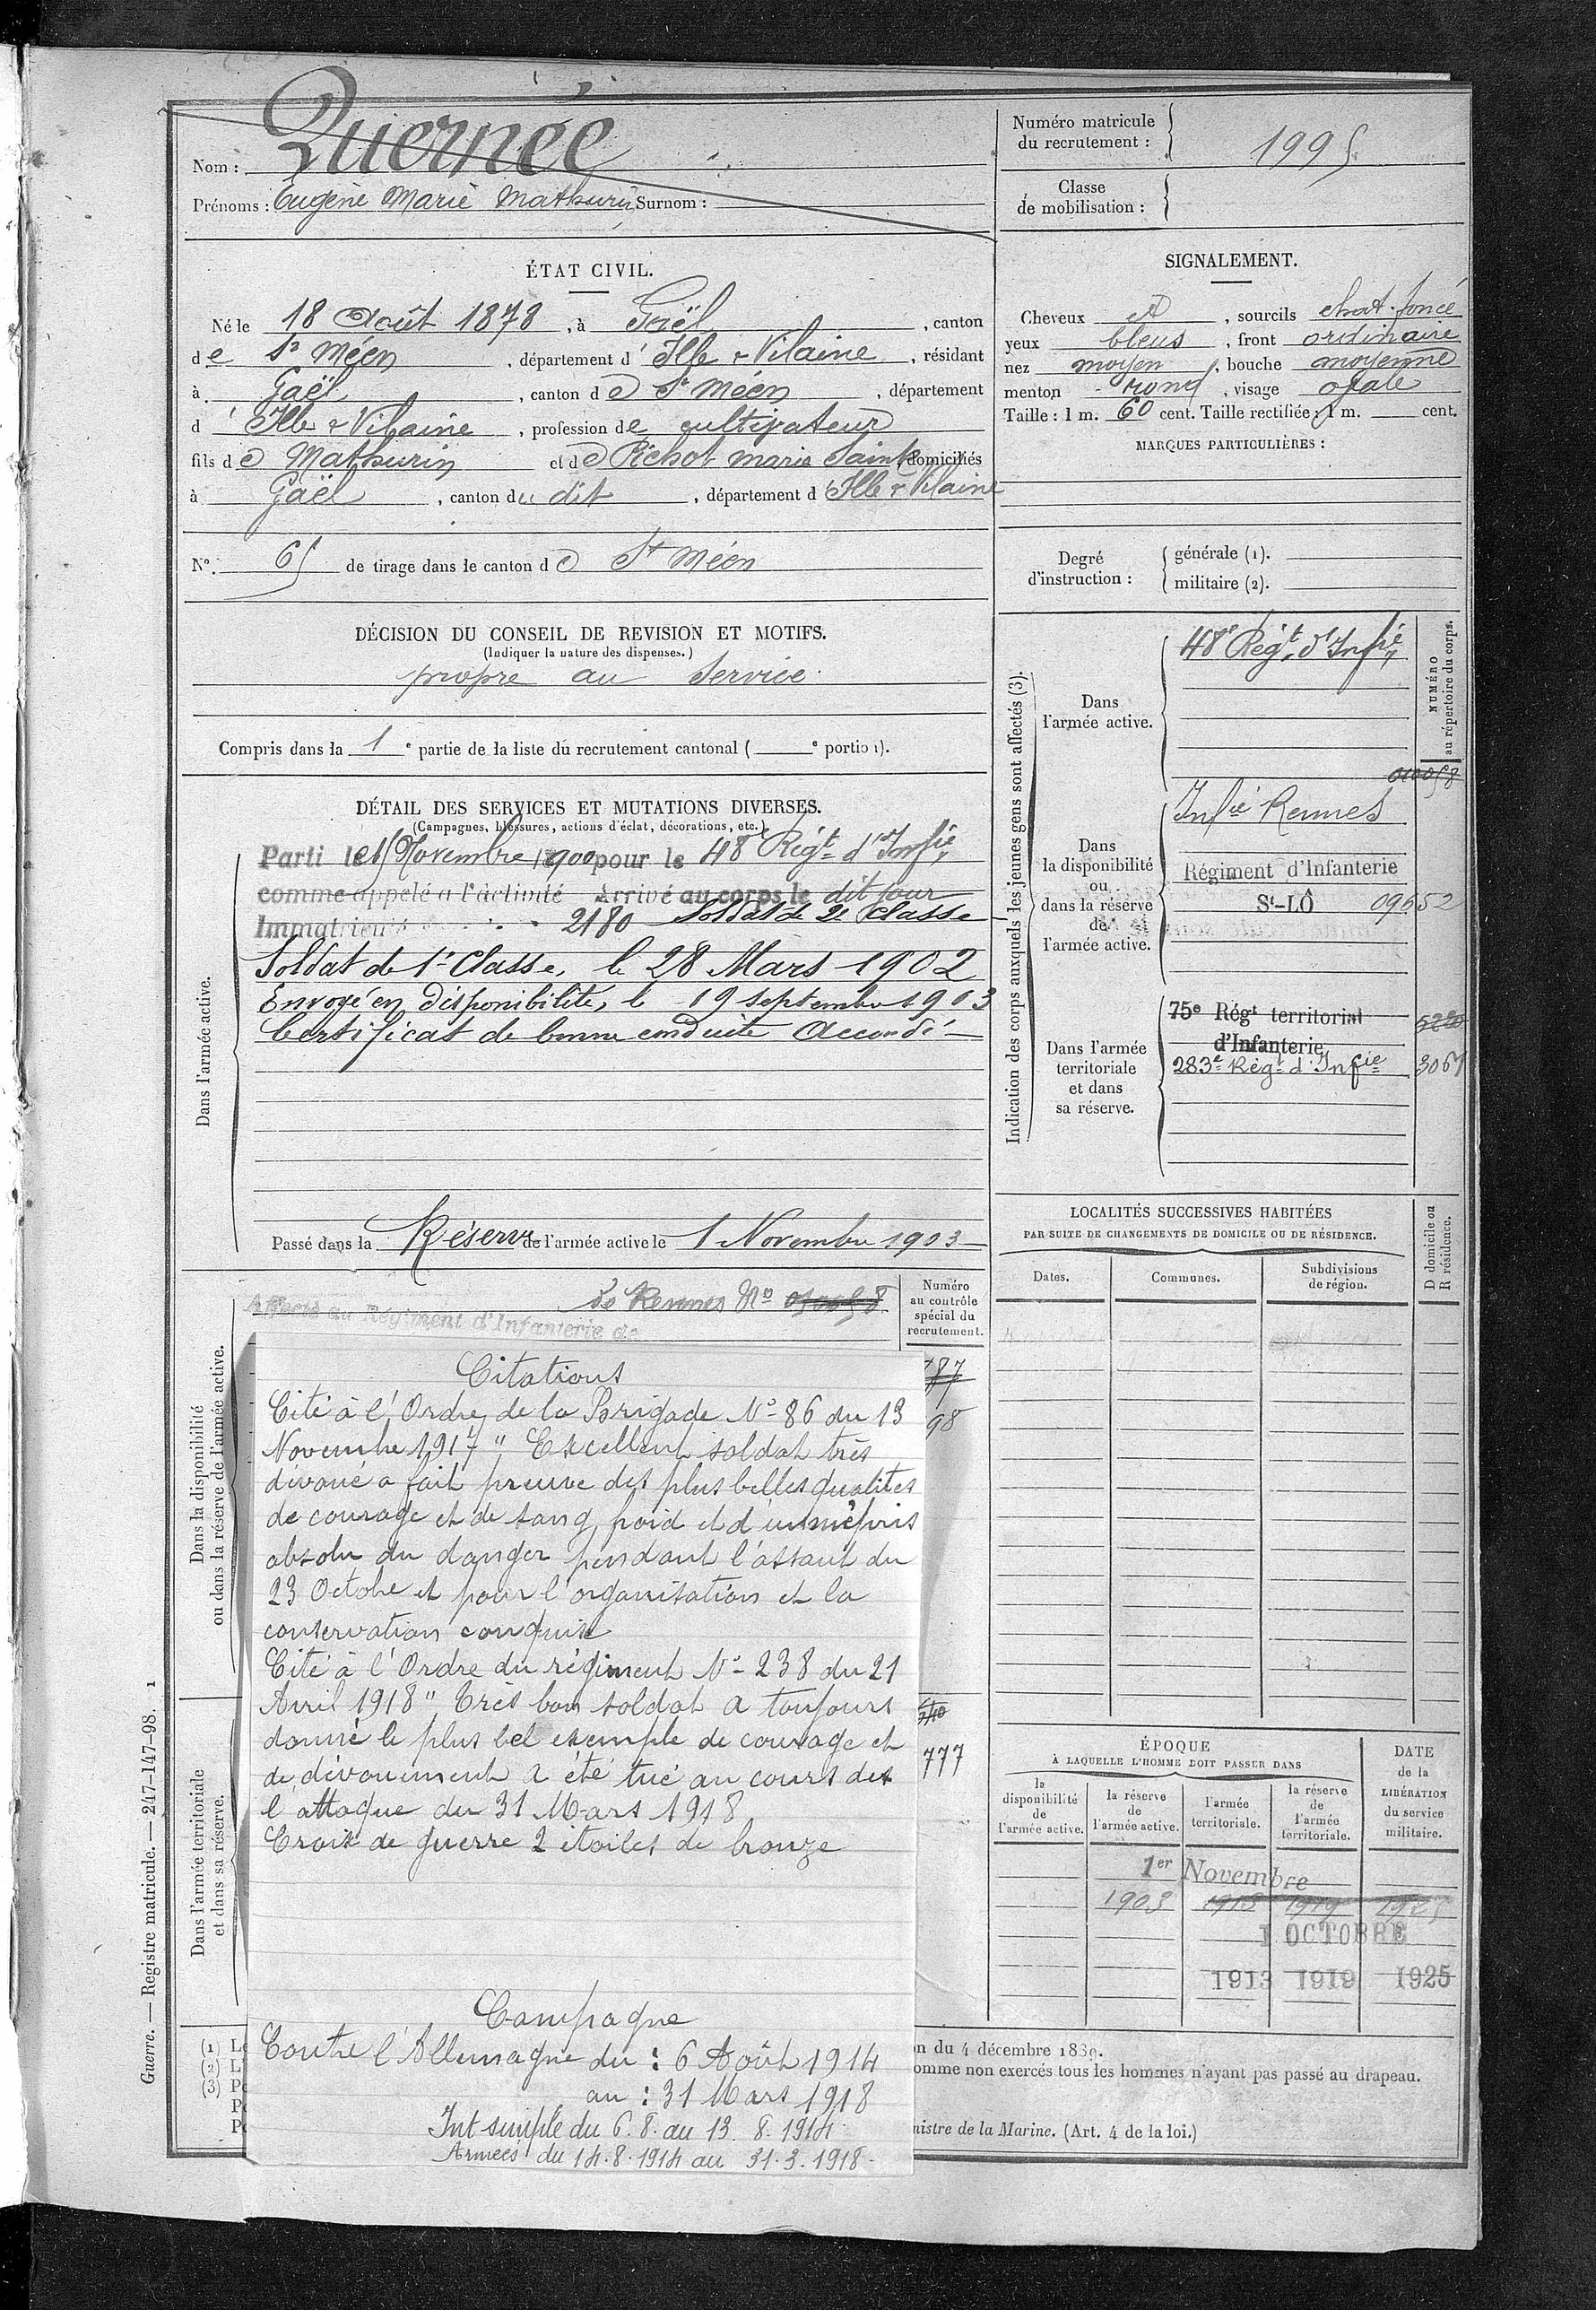 Nom : Quernée
Prénoms : Eugène Marie Mathurin Surnom :
Numéro matricule
du recrutement : 1995
Classe
de mobilisation :
ÉTAT CIVIL.
Né le 18 Août 1878, à Gaël, canton
de St Méen, département d'Ille & Vilaine, résidant
à Gaël, canton de St Méen, département
d'Ille & Vilaine, profession de cultivateur
fils de Mathurin et de Pichot marie Sainte domiciliés
à Gaël, canton du dit, département d'Ille & Vilaine
N° 65 de tirage dans le canton de St Méen
SIGNALEMENT.
Cheveux et, sourcils chat. foncé
yeux bleus, front ordinaire
nez moyen, bouche moyenne
menton rond, visage ovale
Taille : 1 m. 60 cent. Taille rectifiée : 1 m. cent.
MARQUES PARTICULIÈRES :
Degré
d'instruction :
générale (1).
militaire (2).
DÉCISION DU CONSEIL DE REVISION ET MOTIFS.
(Indiquer la nature des dispenses.)
propre au Service
Compris dans la 1e partie de la liste du recrutement cantonal ( e portion).
DÉTAIL DES SERVICES ET MUTATIONS DIVERSES.
(Campagnes, blessures, actions d'éclat, décorations, etc.)
Dans l'armée active.
Parti le 15 Novembre 1900 pour le 48e Régt d'Infie
comme appelé à l'activité Arrivé au corps le dit jour
Immatriculé 2180 Soldat de 2e Classe
Soldat de 1e Classe, le 28 Mars 1902
Envoyé en disponibilité, le 19 septembre 1903
Certificat de bonne conduite Accordé
Passé dans la Réserve de l'armée active le 1 Novembre 1903
Indication des corps auxquels les jeunes gens sont affectés (3).
NUMÉRO
au répertoire du corps.
Dans
l'armée active.
48e Régt d'Infie
010058
Dans
la disponibilité
ou
dans la réserve
de
l'armée active.
Infie Rennes
Régiment d'Infanterie
St-LÔ 09652
Dans l'armée
territoriale
et dans
sa réserve.
75e Régt territorial
d'Infanterie
283e Régt d'Infie 3067
LOCALITÉS SUCCESSIVES HABITÉES
PAR SUITE DE CHANGEMENTS DE DOMICILE OU DE RÉSIDENCE.
D domicile ou
R résidence.
Dates.
Communes.
Subdivisions
de région.
Dans la disponibilité
ou dans la réserve de l'armée active.
Affecté au Régiment d'Infanterie de
de Rennes No
Numéro
au contrôle
spécial du
recrutement.
98
777
Dans l'armée territoriale
et dans sa réserve.
Citations
Cité à l'Ordre de la Brigade No 86 du 13
Novembre 1917 " Excellent soldat très
dévoué a fait preuve des plus belles qualités
de courage et de sang froid et d'un mépris
absolu du danger pendant l'assaut du
23 Octobre et pour l'organisation et la
conservation conquise
Cité à l'Ordre du régiment No 238 du 21
Avril 1918 " Très bon soldat a toujours
donné le plus bel exemple de courage et
de dévouement a été tué au cours de
l'attaque du 31 Mars 1918
Croix de guerre 2 étoiles de bronze
Campagne
Contre l'Allemagne du : 6 Août 1914
au : 31 Mars 1918
Int simple du 6.8. au 13.8.1914
Armées du 14.8.1914 au 31.3.1918
ÉPOQUE
À LAQUELLE L'HOMME DOIT PASSER DANS
DATE
de la
LIBÉRATION
du service
militaire.
la
disponibilité
de
l'armée active.
la réserve
de
l'armée active.
l'armée
territoriale.
la réserve
de
l'armée
territoriale.
1er Novembre
1903 1913 1919 1925
1 OCTOBRE
1913 1919 1925
(1) L
(2) L'
(3) P
n du 4 décembre 1889.
omme non exercés tous les hommes n'ayant pas passé au drapeau.
nistre de la Marine. (Art. 4 de la loi.)
Guerre. — Registre matricule. — 247-147-98. 1